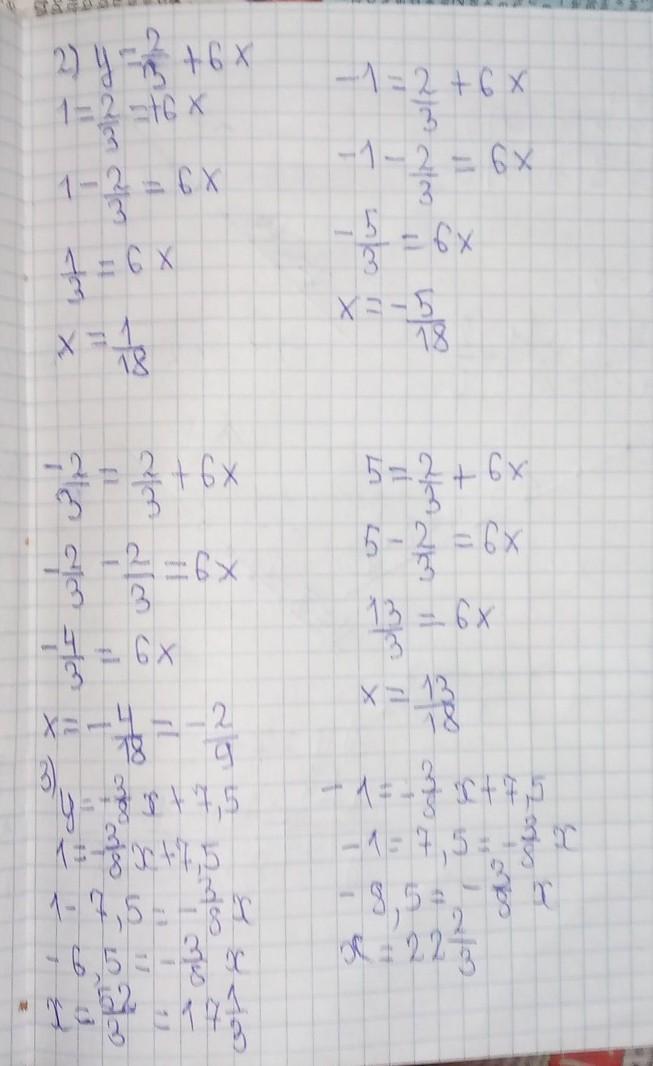 2) y = 2/3 + 6x
1 = 2/3 = +6x
1 - 2/3 = 6x
1/3 = 6x
x = 1/18
-1 = 2/3 + 6x
-1 - 2/3 = 6x
-5/3 = 6x
x = -5/18
-2/3 = 2/3 + 6x
-2/3 - 2/3 = 6x
-4/3 = 6x
x = -4/18 = -2/9
5 = 2/3 + 6x
5 - 2/3 = 6x
13/3 = 6x
x = 13/18
3) y = -3/8 x + 7,5
1 = -3/8 x + 7,5
1 - 7,5 = -3/8 x
-6,5 = -3/8 x
x = 52/3 = 17 1/3
-1 = -3/8 x + 7,5
-1 = 7,5 = -3/8 x
-8,5 = -3/8 x
x = 22 2/3